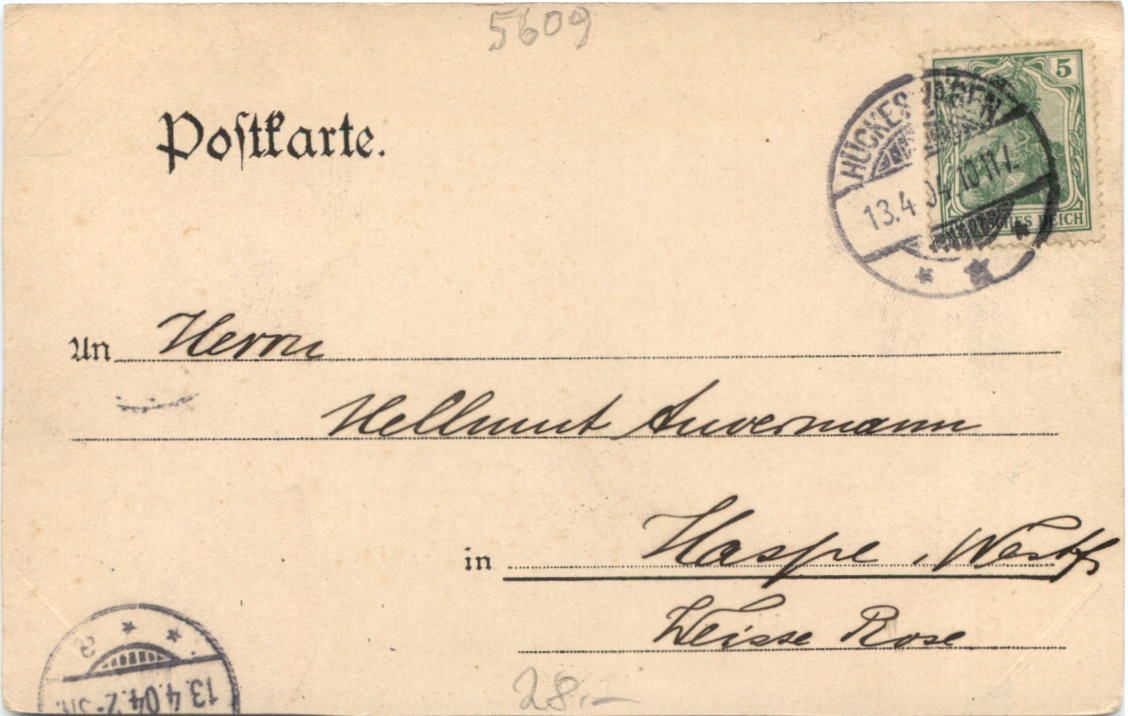 5609
Postkarte.
5
HÜCKESWAGEN
13.4.04.10-11V.
REICH
An Herrn
Hellmut Auvermann
in Haspe, Westf.
Weisse Rose
13.4.04.2-3N.
28.-